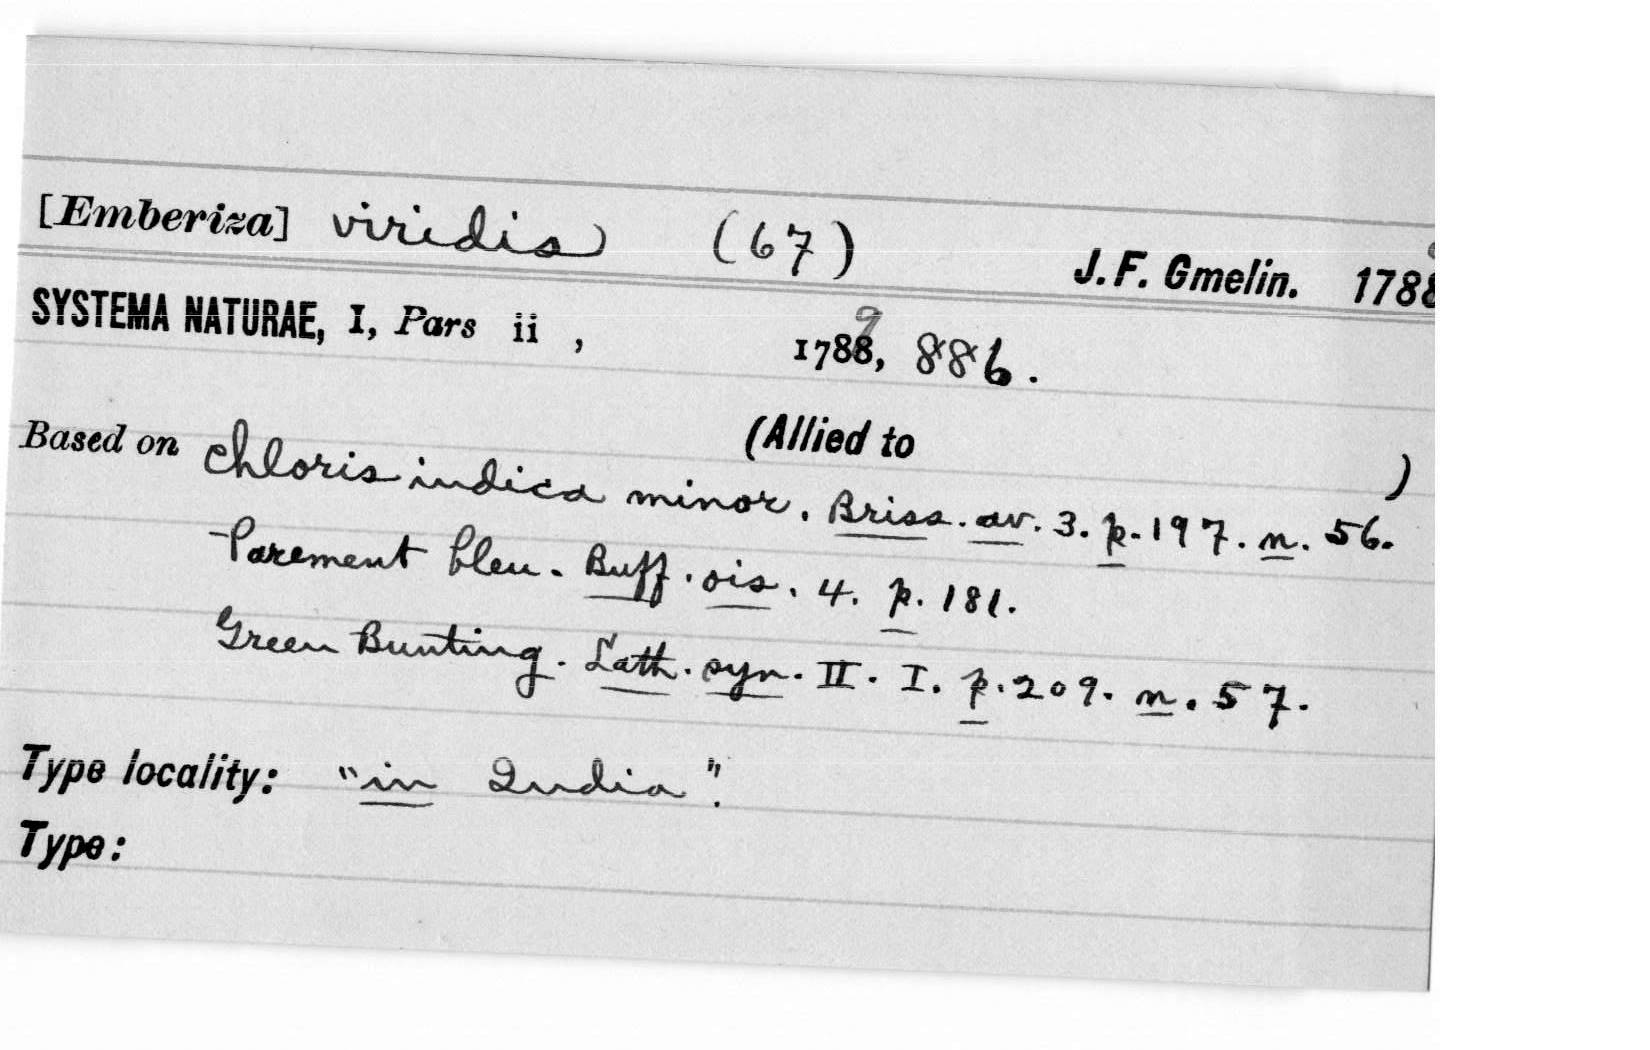 [Emberiza] viridis (67)
J. F. Gmelin. 1788
SYSTEMA NATURAE, I, Pars ii , 1788, 9 886.
(Allied to )
Based on Chloris indica minor. Briss. av. 3. p. 197. n. 56.
Parement bleu. Buff. ois. 4. p. 181.
Green Bunting. Lath. syn. II. I. p. 209. n. 57.
Type locality: "in India".
Type: